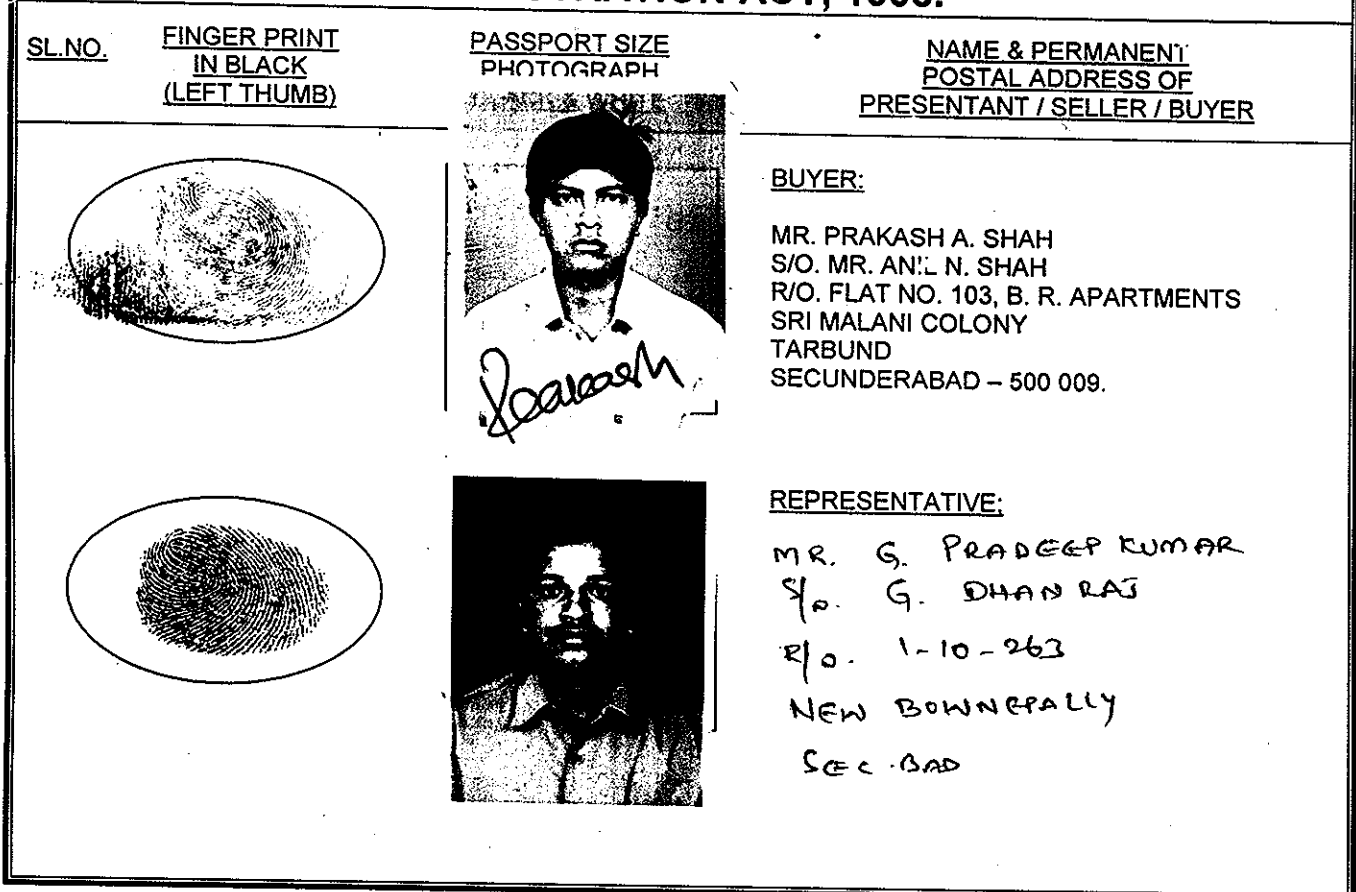 ACT, 1908.
SL.NO.
FINGER PRINT
IN BLACK
(LEFT THUMB)
PASSPORT SIZE
PHOTOGRAPH
NAME & PERMANENT
POSTAL ADDRESS OF
PRESENTANT / SELLER / BUYER
BUYER:
MR. PRAKASH A. SHAH
S/O. MR. ANIL N. SHAH
R/O. FLAT NO. 103, B. R. APARTMENTS
SRI MALANI COLONY
TARBUND
SECUNDERABAD – 500 009.
Prakash
REPRESENTATIVE:
MR. G. PRADEEP KUMAR
S/o. G. DHAN RAJ
R/o. 1-10-263
NEW BOWNEPALLY
SEC.BAD